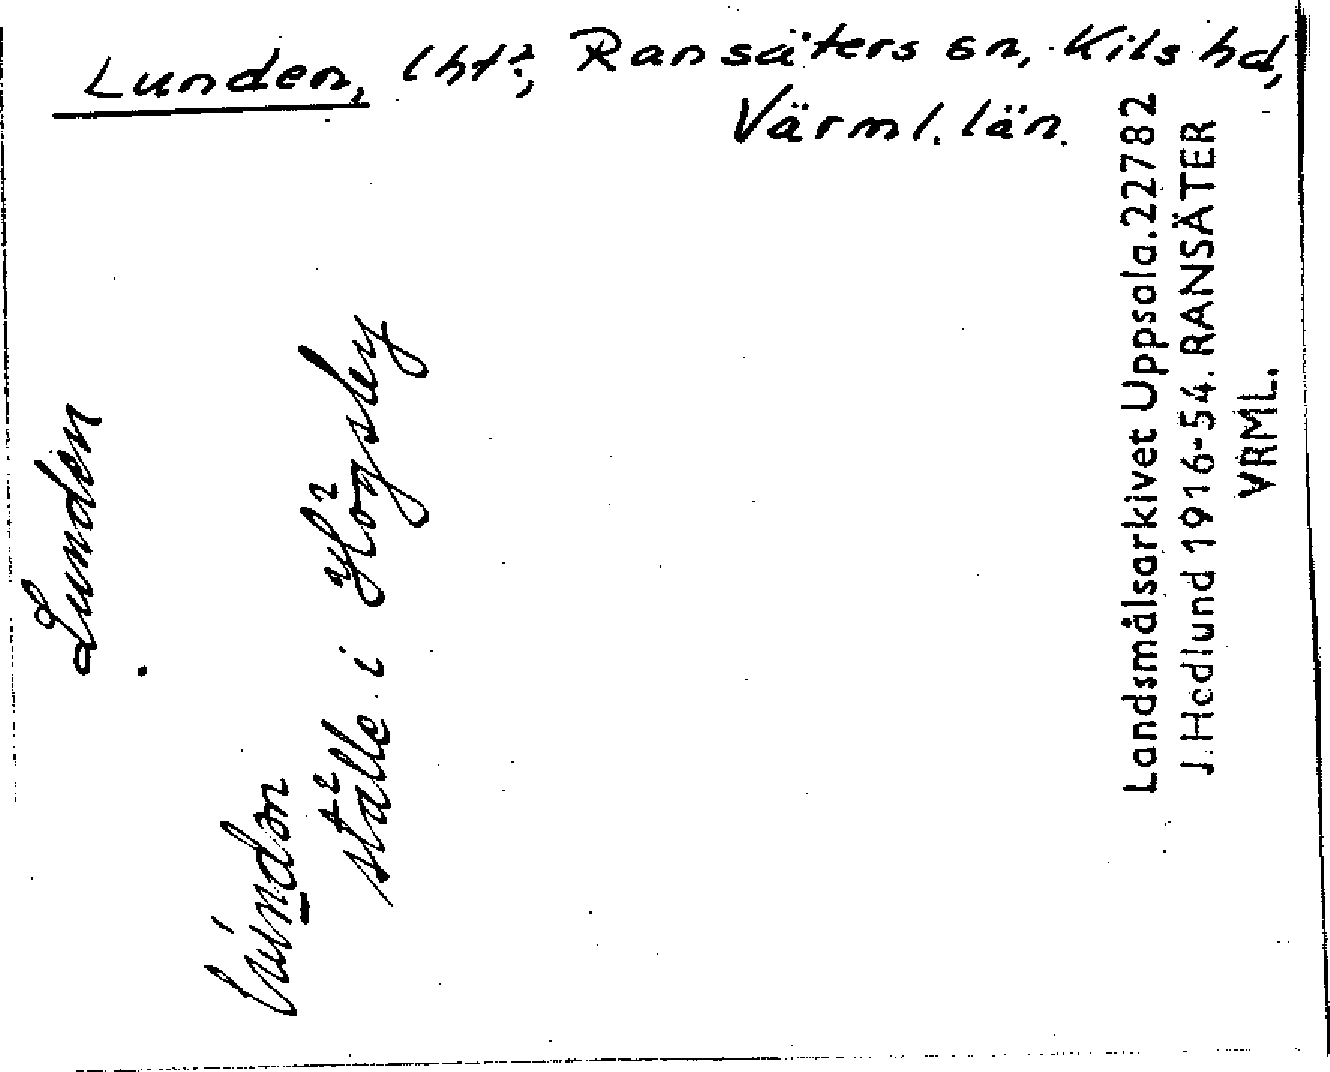 Lunden, lht?, Ransäters sn, Kils hd,
Värml. län.
Lunden
ställe i Högsby
Landsmålsarkivet Uppsala. 22782
J. Hedlund 1916-54. RANSÄTER
VRML.